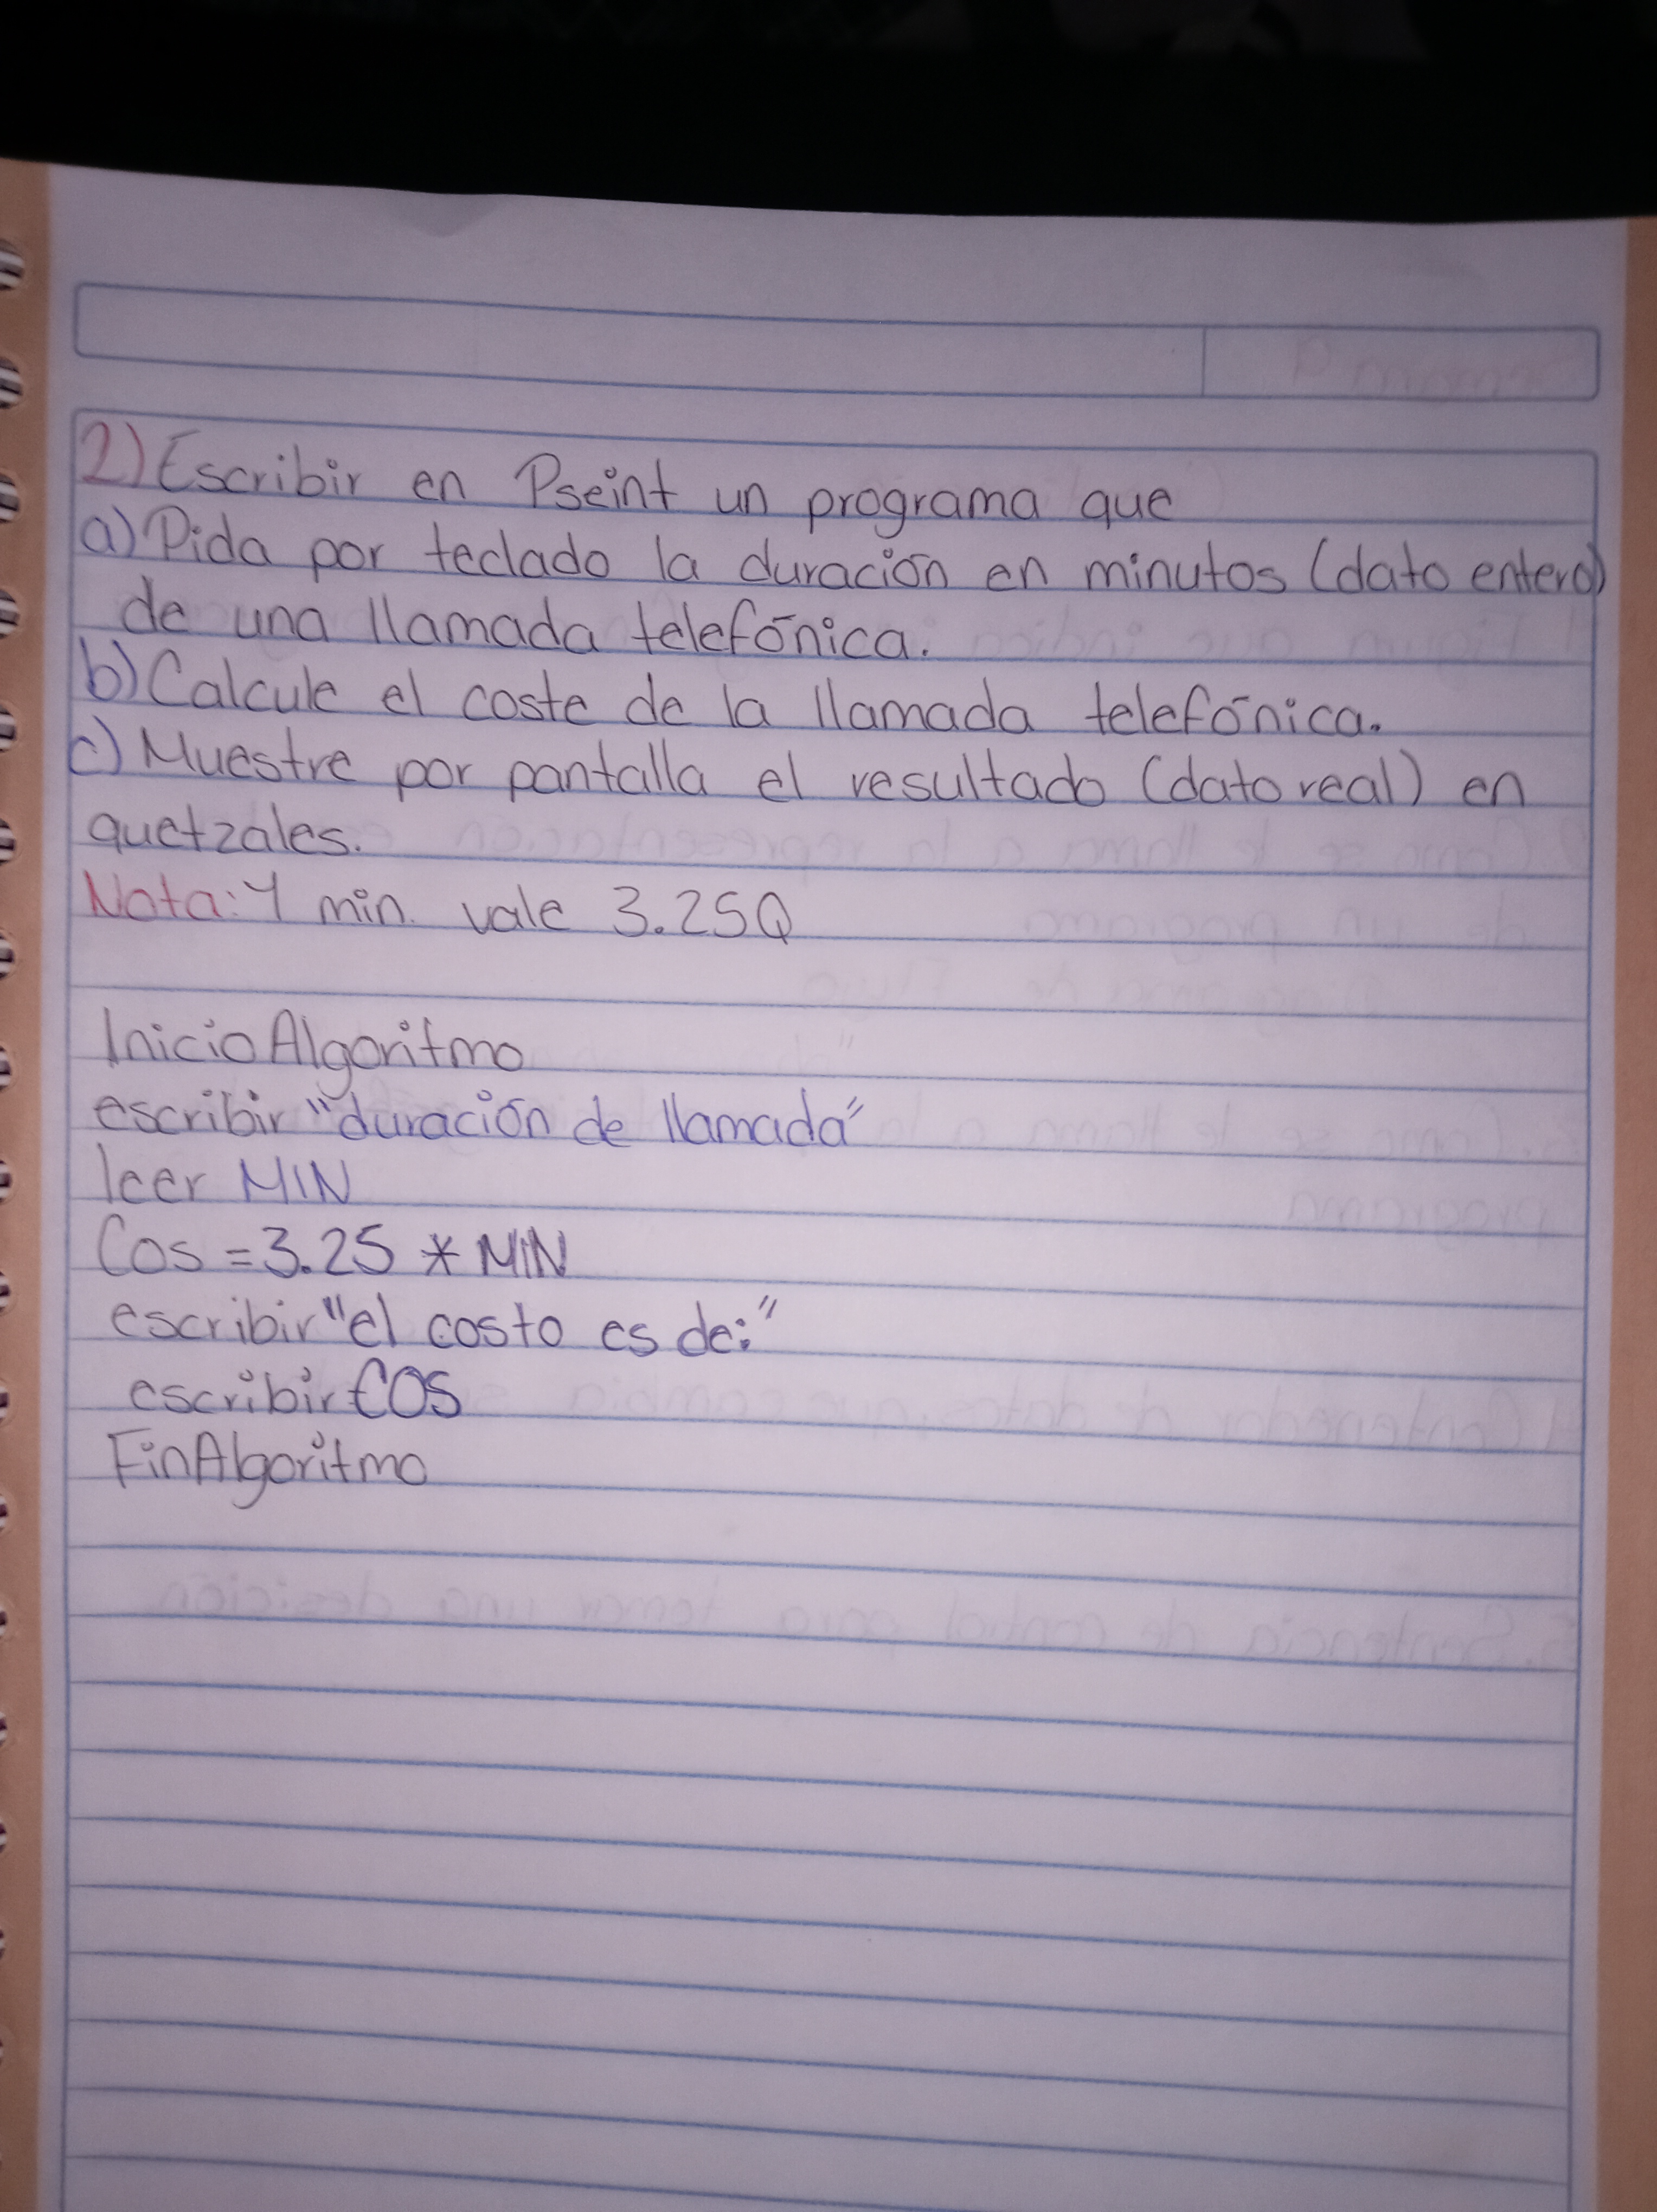 2) Escribir en Pseint un programa que
a) Pida por teclado la duración en minutos (dato entero)
de una llamada telefónica.
b) Calcule el coste de la llamada telefónica.
c) Muestre por pantalla el resultado (dato real) en
quetzales.
Nota: 1 min. vale 3.25Q
Inicio Algoritmo
escribir "duración de llamada"
leer MIN
Cos = 3.25 * MIN
escribir "el costo es de:"
escribir COS
FinAlgoritmo